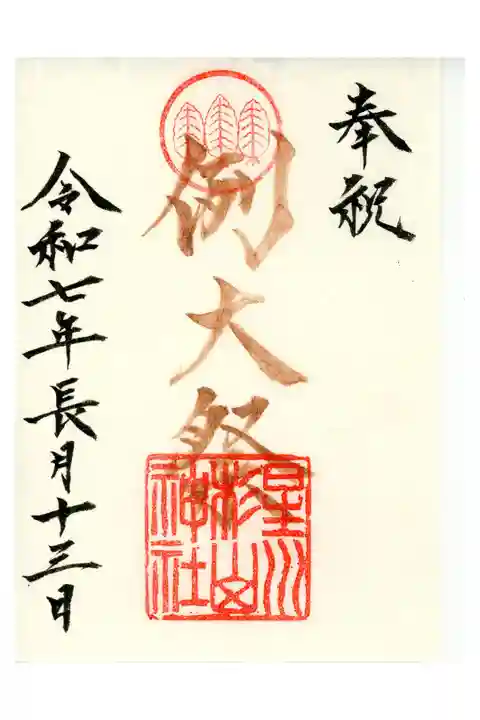 奉祝
例大祭
星川杉山神社
令和七年長月十三日